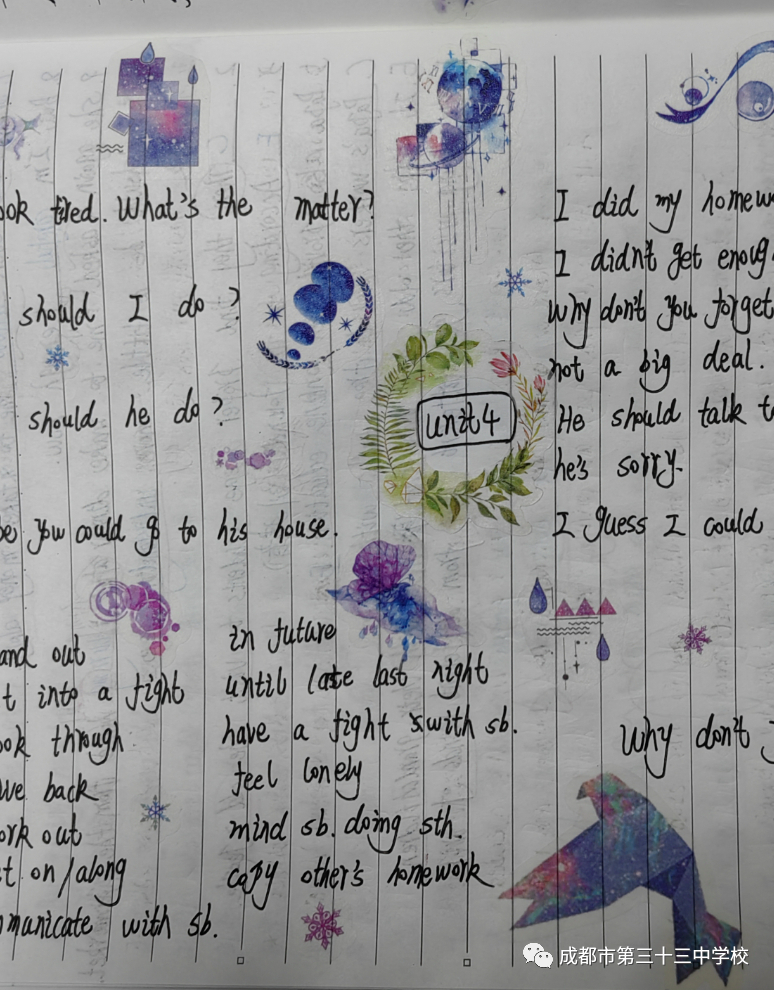 ook tired. What's the matter?
should I do?
should he do?
you could go to his house.
and out
t into a fight
ook through
ve back
ork out
t on/along
municate with sb.
in future
until late last night
have a fight with sb.
feel lonely
mind sb. doing sth.
copy other's homework
unit 4
I did my homew
I didn't get enoug
Why don't you forget
not a big deal.
He should talk t
he's sorry.
I guess I could
Why don't y
成都市第三十三中学校